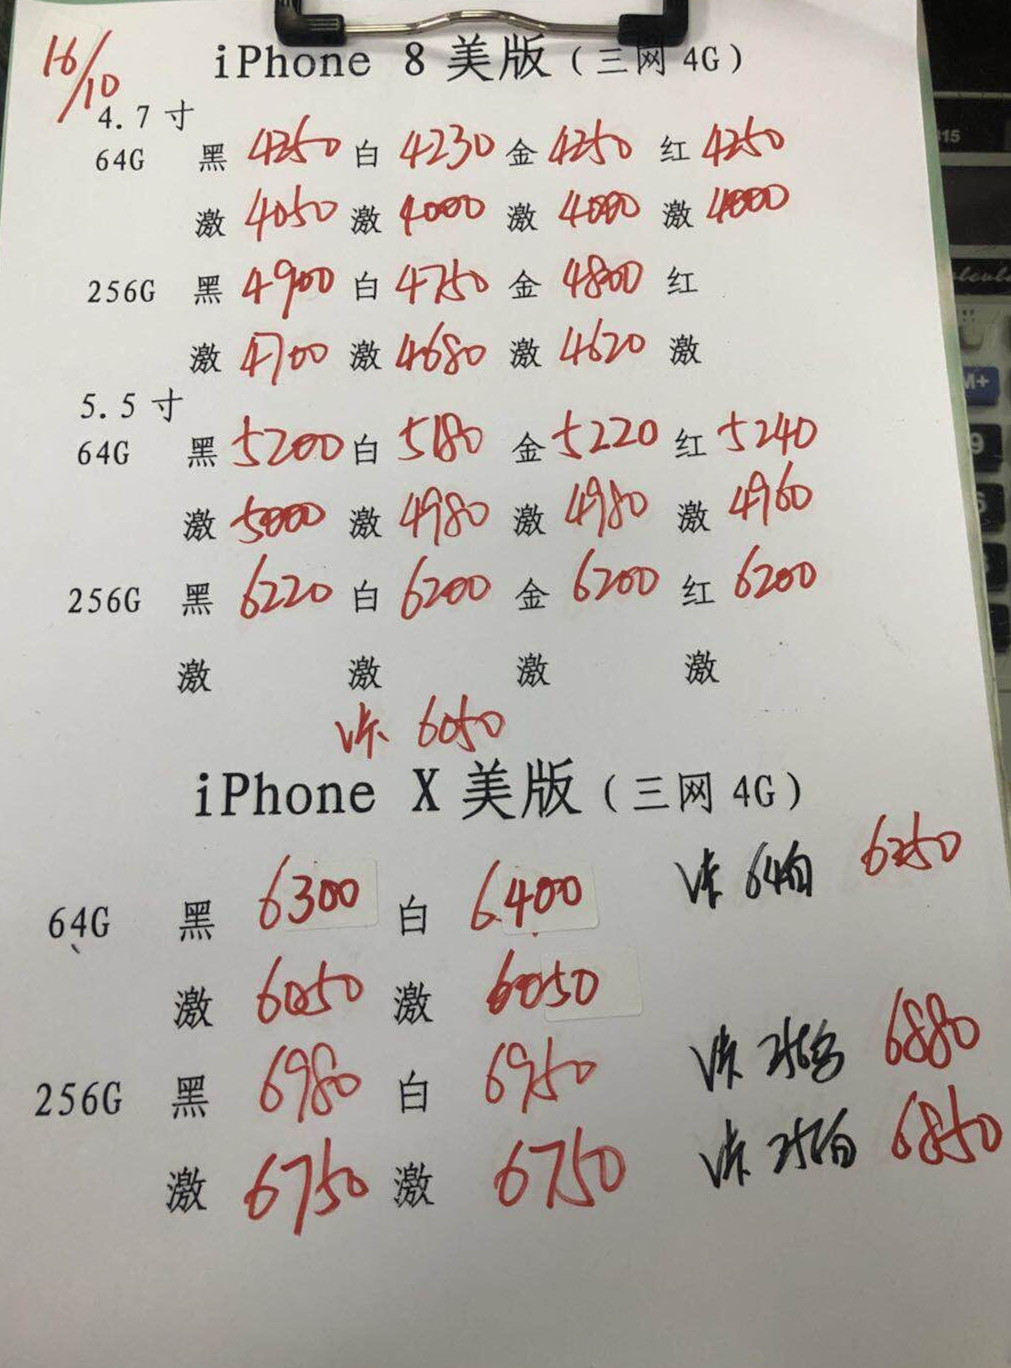 16/10
iPhone 8 美版（三网 4G）
4.7 寸
64G 黑 4250 白 4230 金 4250 红 4250
激 4050 激 4000 激 4000 激 4000
256G 黑 4900 白 4750 金 4800 红
激 4700 激 4680 激 4620 激
5.5 寸
64G 黑 5200 白 5180 金 5220 红 5240
激 5000 激 4980 激 4980 激 4960
256G 黑 6220 白 6200 金 6200 红 6200
激 激 激 激
6050
iPhone X 美版（三网 4G）
64G 黑 6300 白 6400 64白 6250
激 6050 激 6050
256G 黑 6980 白 6950 6880
激 6750 激 6750 256白 6850
315
M+
9